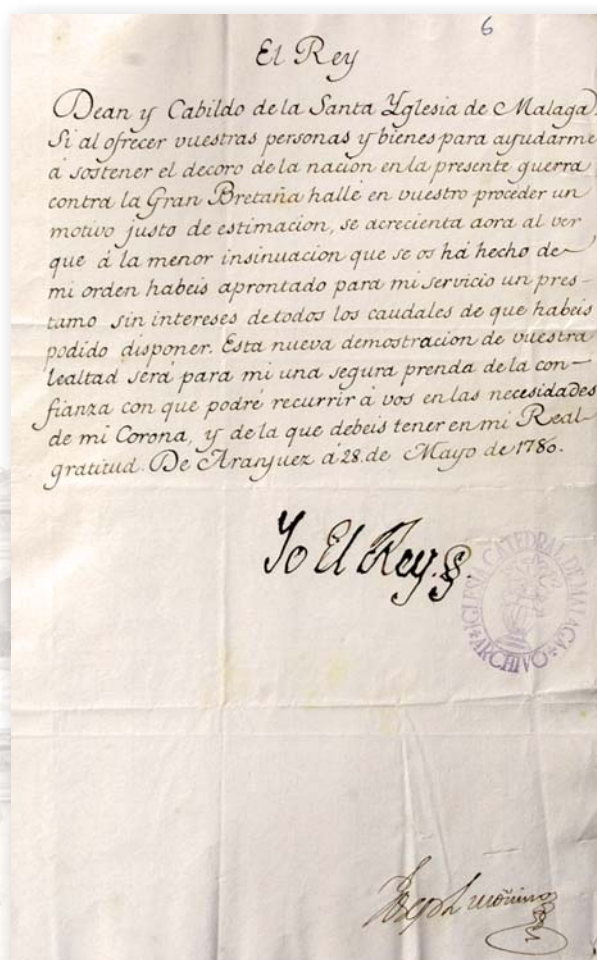 6
El Rey
Dean y Cabildo de la Santa Yglesia de Malaga.
Si al ofrecer vuestras personas y bienes para ayudarme
á sostener el decoro de la nacion en la presente guerra
contra la Gran Bretaña hallé en vuestro proceder un
motivo justo de estimacion, se acrecienta aora al ver
que á la menor insinuacion que se os há hecho de
mi orden habeis aprontado para mi servicio un pres-
tamo sin intereses de todos los caudales de que habeis
podido disponer. Esta nueva demostracion de vuestra
lealtad será para mi una segura prenda de la con-
fianza con que podré recurrir á vos en las necesidades
de mi Corona, y de la que debeis tener en mi Real
gratitud. De Aranjuez á 28. de Mayo de 1780.
Yo El Rey.
IGLESIA CATEDRAL DE MALAGA
ARCHIVO